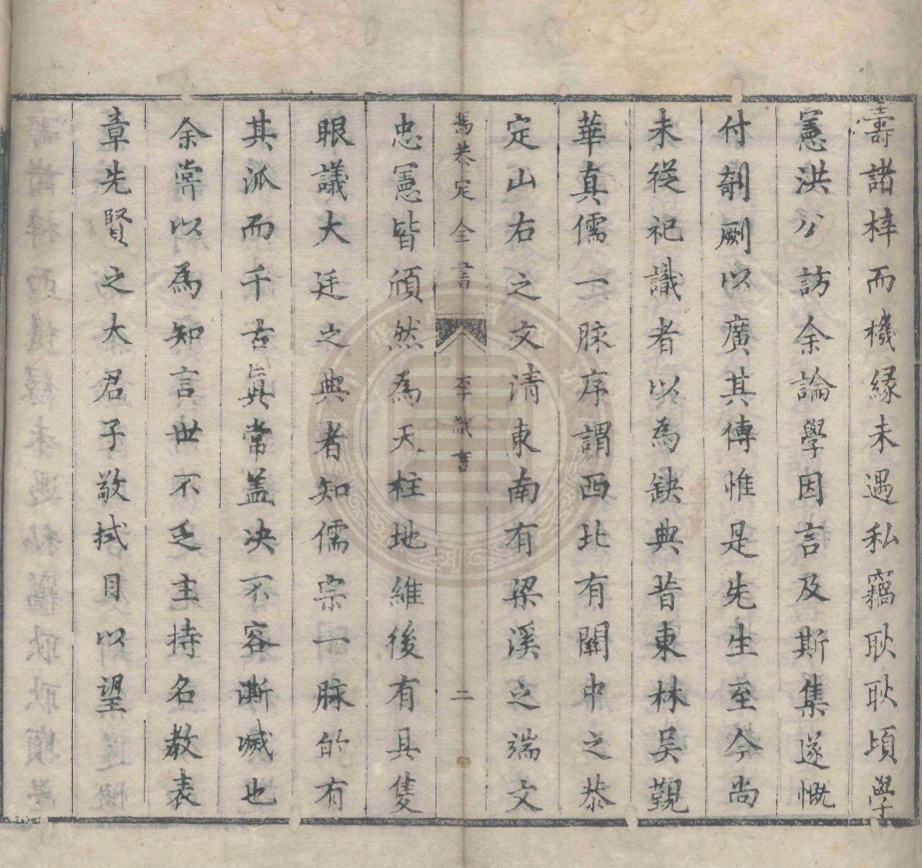 壽諸梓而機緣未遇私竊耿耿頃學
憲洪公訪余論學因言及斯集遂慨
付剞劂以廣其傳惟是先生至今尚
未從祀識者以為缺典昔東林吳覲
華真儒一脉序謂西北有關中之恭
定山右之文清東南有梁溪之端文
馮恭定全書 李敘言 二
忠憲皆頎然為天柱地維後有具隻
眼議大廷之典者知儒宗一脉的有
其派而千古真常盖决不容漸滅也
余嘗以為知言世不乏主持名教表
章先賢之大君子敬拭目以望